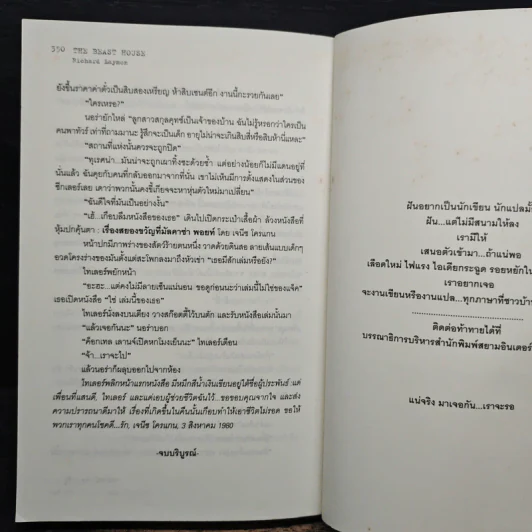 550 THE BEAST HOUSE
Richard Laymon
ยังขึ้นราคาค่าตั๋วเป็นสิบสองเหรียญ ห้าสิบเซนต์อีก งานนี้กะรวยกันเลย"
"ใครเหรอ?"
นอร่ายักไหล่ "ลูกสาวสกุลคุทช์เป็นเจ้าของบ้าน ฉันไม่รู้หรอกว่าใครเป็น
คนพาทัวร์ เท่าที่ถามมานะ รู้สึกจะเป็นเด็ก อายุไม่น่าจะเกินสิบสี่หรือสิบห้านี่แหละ"
"สถานที่แห่งนั้นควรจะถูกปิด"
"ทุเรศน่า...มันน่าจะถูกเผาทิ้งซะด้วยซ้ำ แต่อย่างน้อยก็ไม่มีแดนอยู่ที่
นั่นแล้ว ฉันคุยกับคนที่กลับออกมาจากที่นั่น เขาไม่เห็นมีการตั้งแสดงในส่วนของ
ซีกเลอร์เลย เดาว่าพวกนั้นคงขี้เกียจจะหาหุ่นตัวใหม่มาเปลี่ยน"
"ฉันดีใจที่มันเป็นอย่างงั้น"
"เฮ้...เกือบลืมหนังสือของเธอ" เดินไปเปิดกระเป๋าเสื้อผ้า ล้วงหนังสือที่
หุ้มปกคุ้นตา : เรื่องสยองขวัญที่มัลคาซ่า พอยท์ โดย เจนีซ โครแกน
หน้าปกมีภาพร่างของสัตว์ร้ายตนหนึ่ง วาดด้วยดินสอ ลายเส้นแบบเด็กๆ
อวดโครงร่างของมันตั้งแต่สะโพกลงมาถึงหัวเข่า "เธอมีสักเล่มหรือยัง?"
ไทเลอร์พยักหน้า
"อะฮะ...แต่คงไม่มีลายเซ็นแน่นอน ขอดูก่อนนะว่าเล่มนี้ไม่ใช่ของแจ็ค"
เธอเปิดหนังสือ "ใช่ เล่มนี้ของเธอ"
ไทเลอร์นั่งลงบนเตียง วางสก๊อตตี้ไว้บนตัก และรับหนังสือเล่มนั้นมา
"แล้วเจอกันนะ" นอร่าบอก
"ค็อกเทล เลานจ์เปิดหกโมงเย็นนะ" ไทเลอร์เตือน
"จ้า...เราจะไป"
แล้วนอร่าก็ผลุบออกไปจากห้อง
ไทเลอร์พลิกหน้าแรกหนังสือ มีหมึกสีน้ำเงินเขียนอยู่ใต้ชื่อผู้ประพันธ์ : แด่
เพื่อนที่แสนดี, ไทเลอร์ และแด่เอบผู้ช่วยชีวิตฉันไว้...ขอขอบคุณจากใจ และส่ง
ความปรารถนาดีมาให้ เรื่องที่เกิดขึ้นในคืนนั้นเกือบทำให้เอาชีวิตไม่รอด ขอให้
พวกเราทุกคนโชคดี...รัก, เจนีซ โครแกน, 3 สิงหาคม 1980
-จบบริบูรณ์-
ฝันอยากเป็นนักเขียน นักแปลมั้
ฝัน...แต่ไม่มีสนามให้ลง
เรามีให้
เสนอตัวเข้ามา...ถ้าแน่พอ
เลือดใหม่ ไฟแรง ไอเดียกระฉูด รอยหยักใน
เราอยากเจอ
จะงานเขียนหรืองานแปล...ทุกภาษาที่ชาวบ้าน
..............................
ติดต่อท้าทายได้ที่
บรรณาธิการบริหารสำนักพิมพ์สยามอินเตอร์
แน่จริง มาเจอกัน...เราจะรอ